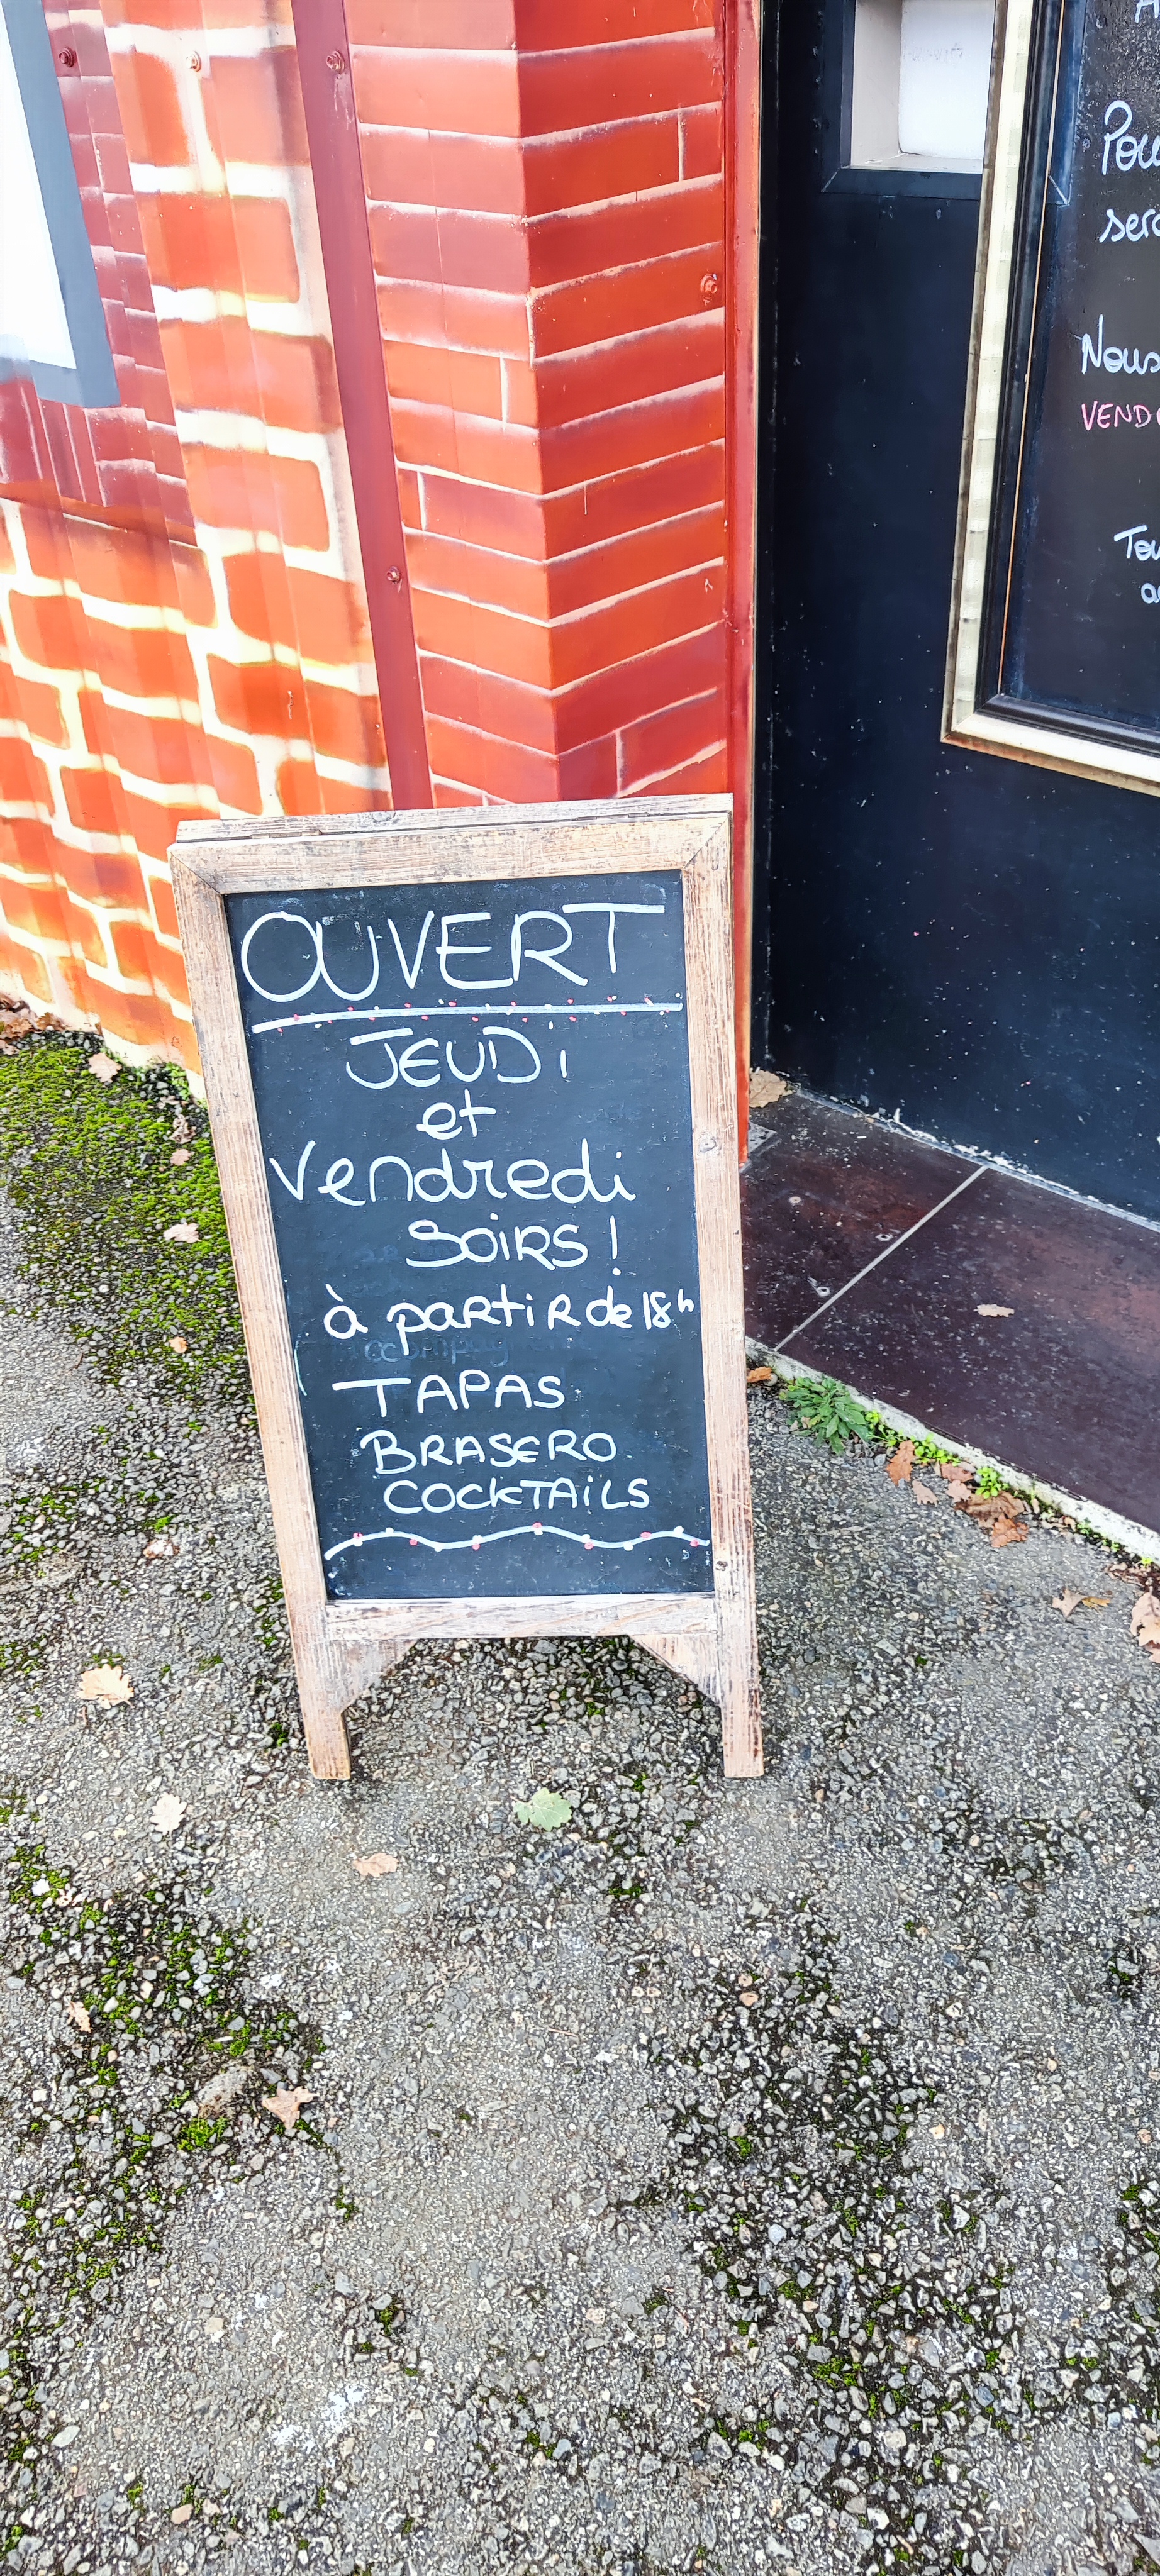 OUVERT
JEUDi
et
Vendredi
SOiRS !
à partiR de 18h
TAPAS
BRASERO
COCKTAiLS
Nous